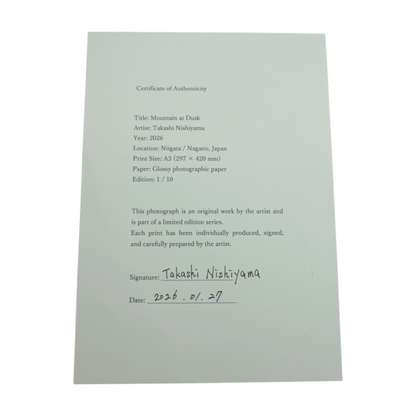 Certificate of Authenticity
Title: Mountain at Dusk
Artist: Takashi Nishiyama
Year: 2026
Location: Niigata / Nagano, Japan
Print Size: A3 (297 × 420 mm)
Paper: Glossy photographic paper
Edition: 1 / 10
This photograph is an original work by the artist and
is part of a limited edition series.
Each print has been individually produced, signed,
and carefully prepared by the artist.
Signature: Takashi Nishiyama
Date: 2026.01.27